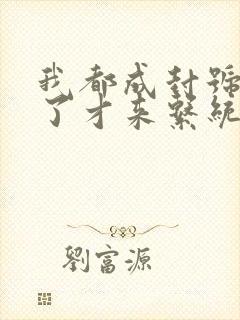 我都成封號
了才来繫統
劉富源